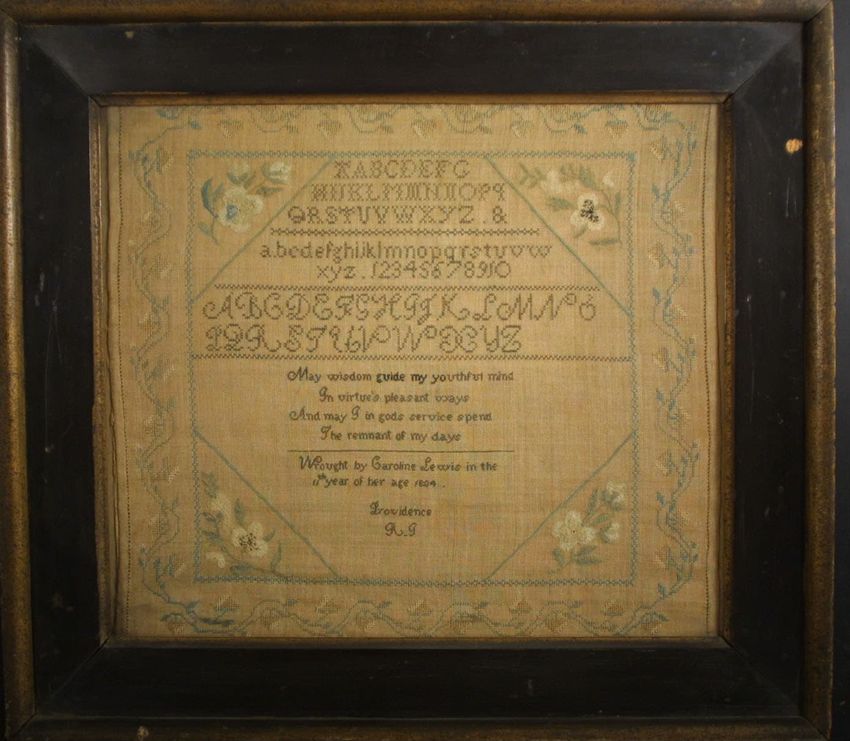 ABCDEFG
HIJKLMNOPQ
QRSTUVWXYZ.&
abcdefghijklmnopqrstuvw
xyz.12345678910
ABCDEFGHIJKLMNO
PQRSTUVWXYZ
May wisdom guide my youthful mind
In virtue's pleasant ways
And may I in gods service spend
The remnant of my days
Wrought by Caroline Lewis in the
11th year of her age 1804.
Providence
R.I